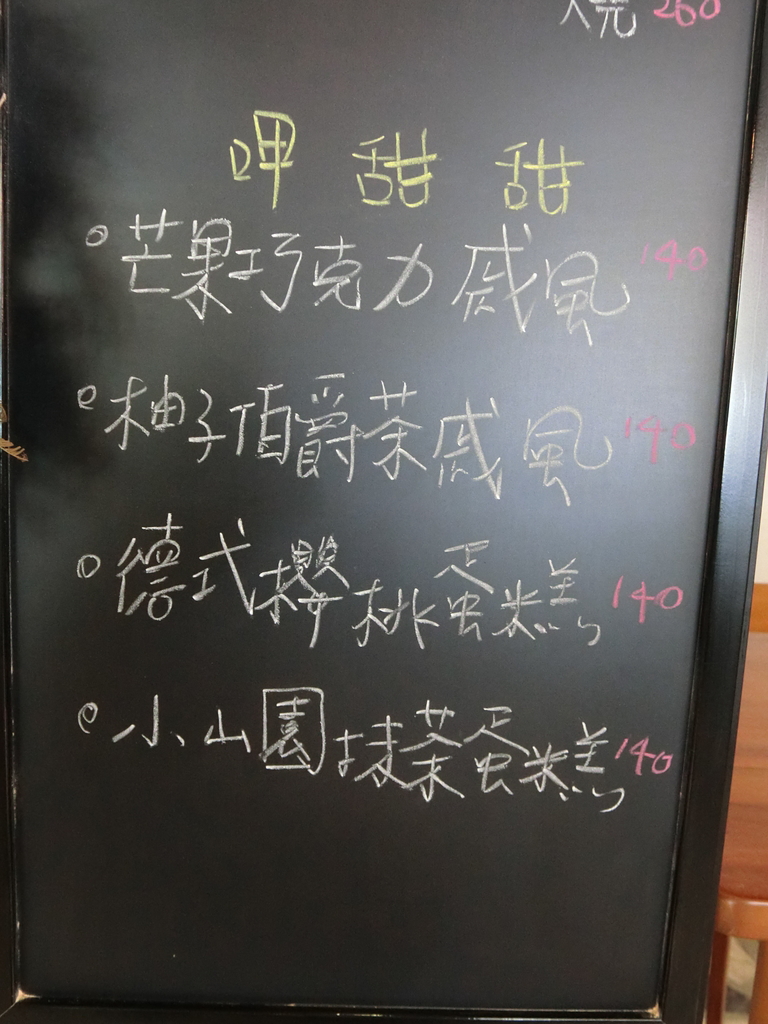 燒 260
呷 甜 甜
芒果巧克力戚風 140
柚子伯爵茶戚風 140
德式櫻桃蛋糕 140
小山園抹茶蛋糕 140